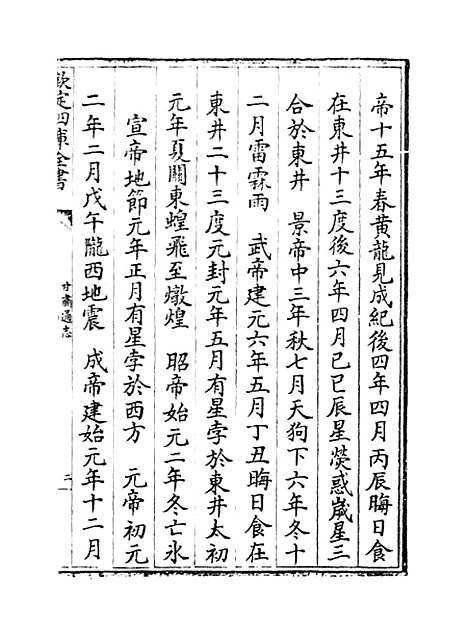 帝十五年春黃龍見成紀後四年四月丙辰晦日食
在東井十三度後六年四月己巳辰星熒惑歲星三
合於東井　景帝中三年秋七月天狗下六年冬十
二月雷霖雨　武帝建元六年五月丁丑晦日食在
東井二十三度元封元年五月有星孛於東井太初
元年夏關東蝗飛至燉煌　昭帝始元二年冬亡氷
宣帝地節元年正月有星孛於西方　元帝初元
二年二月戊午隴西地震　成帝建始元年十二月
欽定四庫全書
甘肅通志